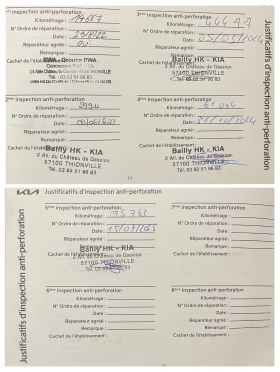 1ère inspection anti-perforation
Kilométrage :
N° Ordre de réparation :
Date :
Réparateur agréé : oui
Remarque :
Cachet de l'établissement :
Tél. 03 82 51 86 83
2ème inspection anti-perforation
Kilométrage :
N° Ordre de réparation :
Date :
Réparateur agréé :
Remarque :
Cachet de l'établissement :
Bailly HK - KIA
2 All. du Château de Gassion
57100 THIONVILLE
Tél. 03 82 51 86 83
3ème inspection anti-perforation
Kilométrage :
N° Ordre de réparation :
Date : 05/03/2024
Réparateur agréé :
Remarque :
Cachet de l'établissement :
Bailly HK - KIA
2 All. du Château de Gassion
57100 THIONVILLE
Tél. 03 82 51 86 83
4ème inspection anti-perforation
Kilométrage :
N° Ordre de réparation :
Date : 31/10/2024
Réparateur agréé :
Remarque :
Cachet de l'établissement :
Bailly HK - KIA
2 All. du Château de Gassion
57100 THIONVILLE
Tél. 03 82 51 86 83
Justificatifs d'inspection anti-perforation
KIA Justificatifs d'inspection anti-perforation
5ème inspection anti-perforation
Kilométrage :
N° Ordre de réparation :
Date :
Réparateur agréé :
Remarque :
Cachet de l'établissement :
Bailly HK - KIA
2 All. du Château de Gassion
57100 THIONVILLE
6ème inspection anti-perforation
Kilométrage :
N° Ordre de réparation :
Date :
Réparateur agréé :
Remarque :
Cachet de l'établissement :
7ème inspection anti-perforation
Kilométrage :
N° Ordre de réparation :
Date :
Réparateur agréé :
Remarque :
Cachet de l'établissement :
8ème inspection anti-perforation
Kilométrage :
N° Ordre de réparation :
Date :
Réparateur agréé :
Remarque :
Cachet de l'établissement :
Justificatifs d'inspection anti-perforation